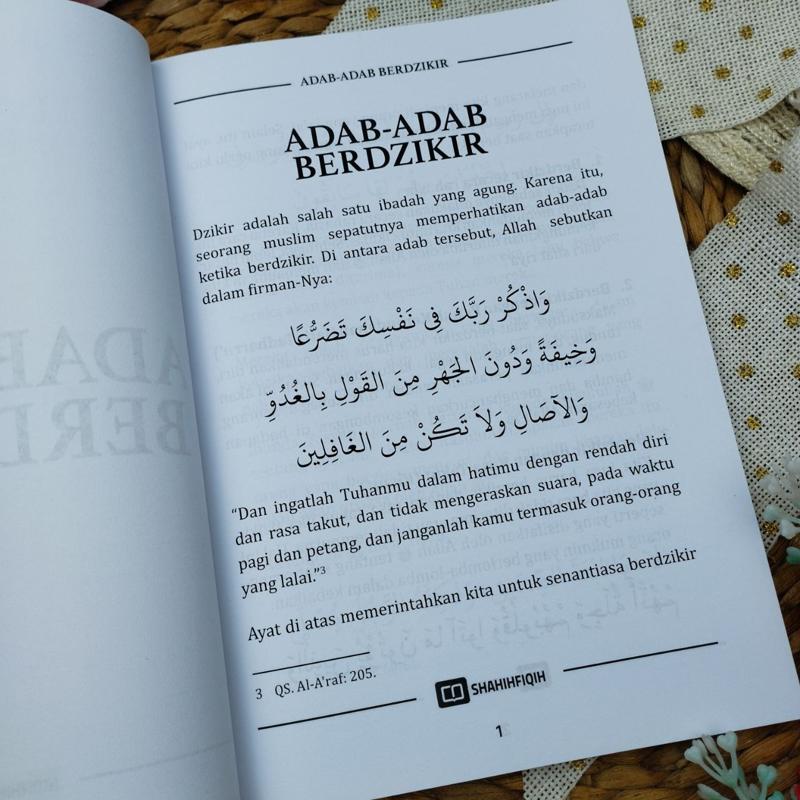 ADAB-ADAB BERDZIKIR
ADAB-ADAB
BERDZIKIR
Dzikir adalah salah satu ibadah yang agung. Karena itu,
seorang muslim sepatutnya memperhatikan adab-adab
ketika berdzikir. Di antara adab tersebut, Allah sebutkan
dalam firman-Nya:
وَاذْكُرْ رَبَّكَ فِي نَفْسِكَ تَضَرُّعًا
وَخِيفَةً وَدُونَ الْجَهْرِ مِنَ القَوْلِ بِالغُدُوِّ
وَالآصَالِ وَلاَ تَكُنْ مِنَ الغَافِلِينَ
“Dan ingatlah Tuhanmu dalam hatimu dengan rendah diri
dan rasa takut, dan tidak mengeraskan suara, pada waktu
pagi dan petang, dan janganlah kamu termasuk orang-orang
yang lalai.”³
Ayat di atas memerintahkan kita untuk senantiasa berdzikir
3 QS. Al-A'raf: 205.
SHAHIHFIQIH
1